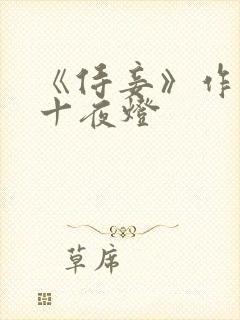 《侍妾》作
十夜燈
草席